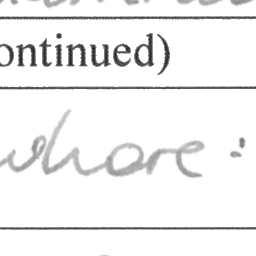 ontinued)
whore :